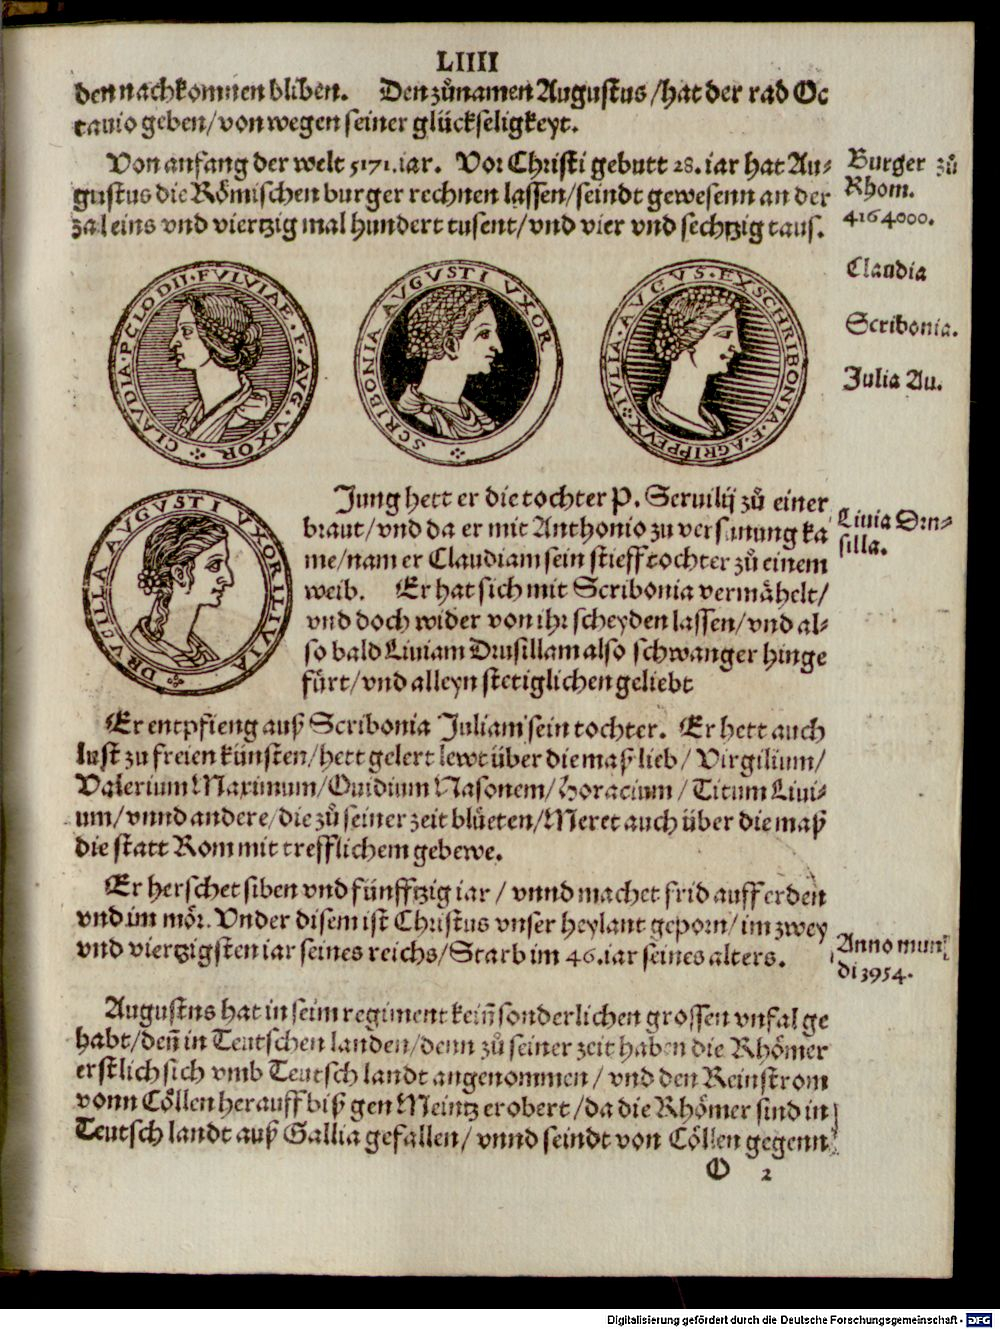 LIIII
den nachkommen bliben. Den zůnamen Augustus/hat der rad Oc
tauio geben/von wegen seiner glückseligkeyt.
Von anfang der welt 5171.iar. Vor Christi geburt 28.iar hat Au-
gustus die Römischen burger rechnen lassen/seindt gewesenn an der
zal eins vnd viertzig mal hundert tusent/vnd vier vnd sechtzig taus.
Burger zů
Rhom.
4164000.
Claudia
Scribonia.
Julia Au.
CLAVDIA·P·CLODII·FVLVIAE·F·AVG·VXOR
SCRIBONIA AVGVSTI VXOR
IVLIA·AVGVS·EX SCHRIBONIA·F·AGRIPPE VX
DRVCILLA AVGVSTI VXOR LIVIA
Jung hett er die tochter P. Seruilij zů einer
braut/vnd da er mit Anthonio zu versünung ka
me/nam er Claudiam sein stieff tochter zů einem
weib. Er hat sich mit Scribonia vermähelt/
vnd doch wider von ihr scheyden lassen/vnd al-
so bald Liuiam Drusillam also schwanger hinge
fürt/vnd alleyn stetiglichen geliebt
Liuia Dru-
silla.
Er entpfieng auß Scribonia Juliam sein tochter. Er hett auch
lust zu freien künsten/hett gelert lewt über die maß lieb/Virgilium/
Valerium Maximum/Ouidium Nasonem/Horacium/Titum Liui-
um/vnnd andere/die zů seiner zeit blüeten/Meret auch über die maß
die statt Rom mit trefflichem gebewe.
Er herschet siben vnd fünfftzig iar/vnnd machet frid auff erden
vnd im mör. Vnder disem ist Christus vnser heylant geporn/im zwey
vnd viertzigsten iar seines reichs/Starb im 46.iar seines alters.
Anno mun
di 3954.
Augustus hat in seim regiment keiñ sonderlichen grossen vnfal ge
habt/deñ in Teutschen landen/denn zů seiner zeit haben die Rhömer
erstlich sich vmb Teutsch landt angenommen/vnd den Reinstrom
vonn Cöllen herauff biß gen Meintz erobert/da die Rhömer sind in
Teutsch landt auß Gallia gefallen/vnnd seindt von Cöllen gegenn
O 2
Digitalisierung gefördert durch die Deutsche Forschungsgemeinschaft - DFG